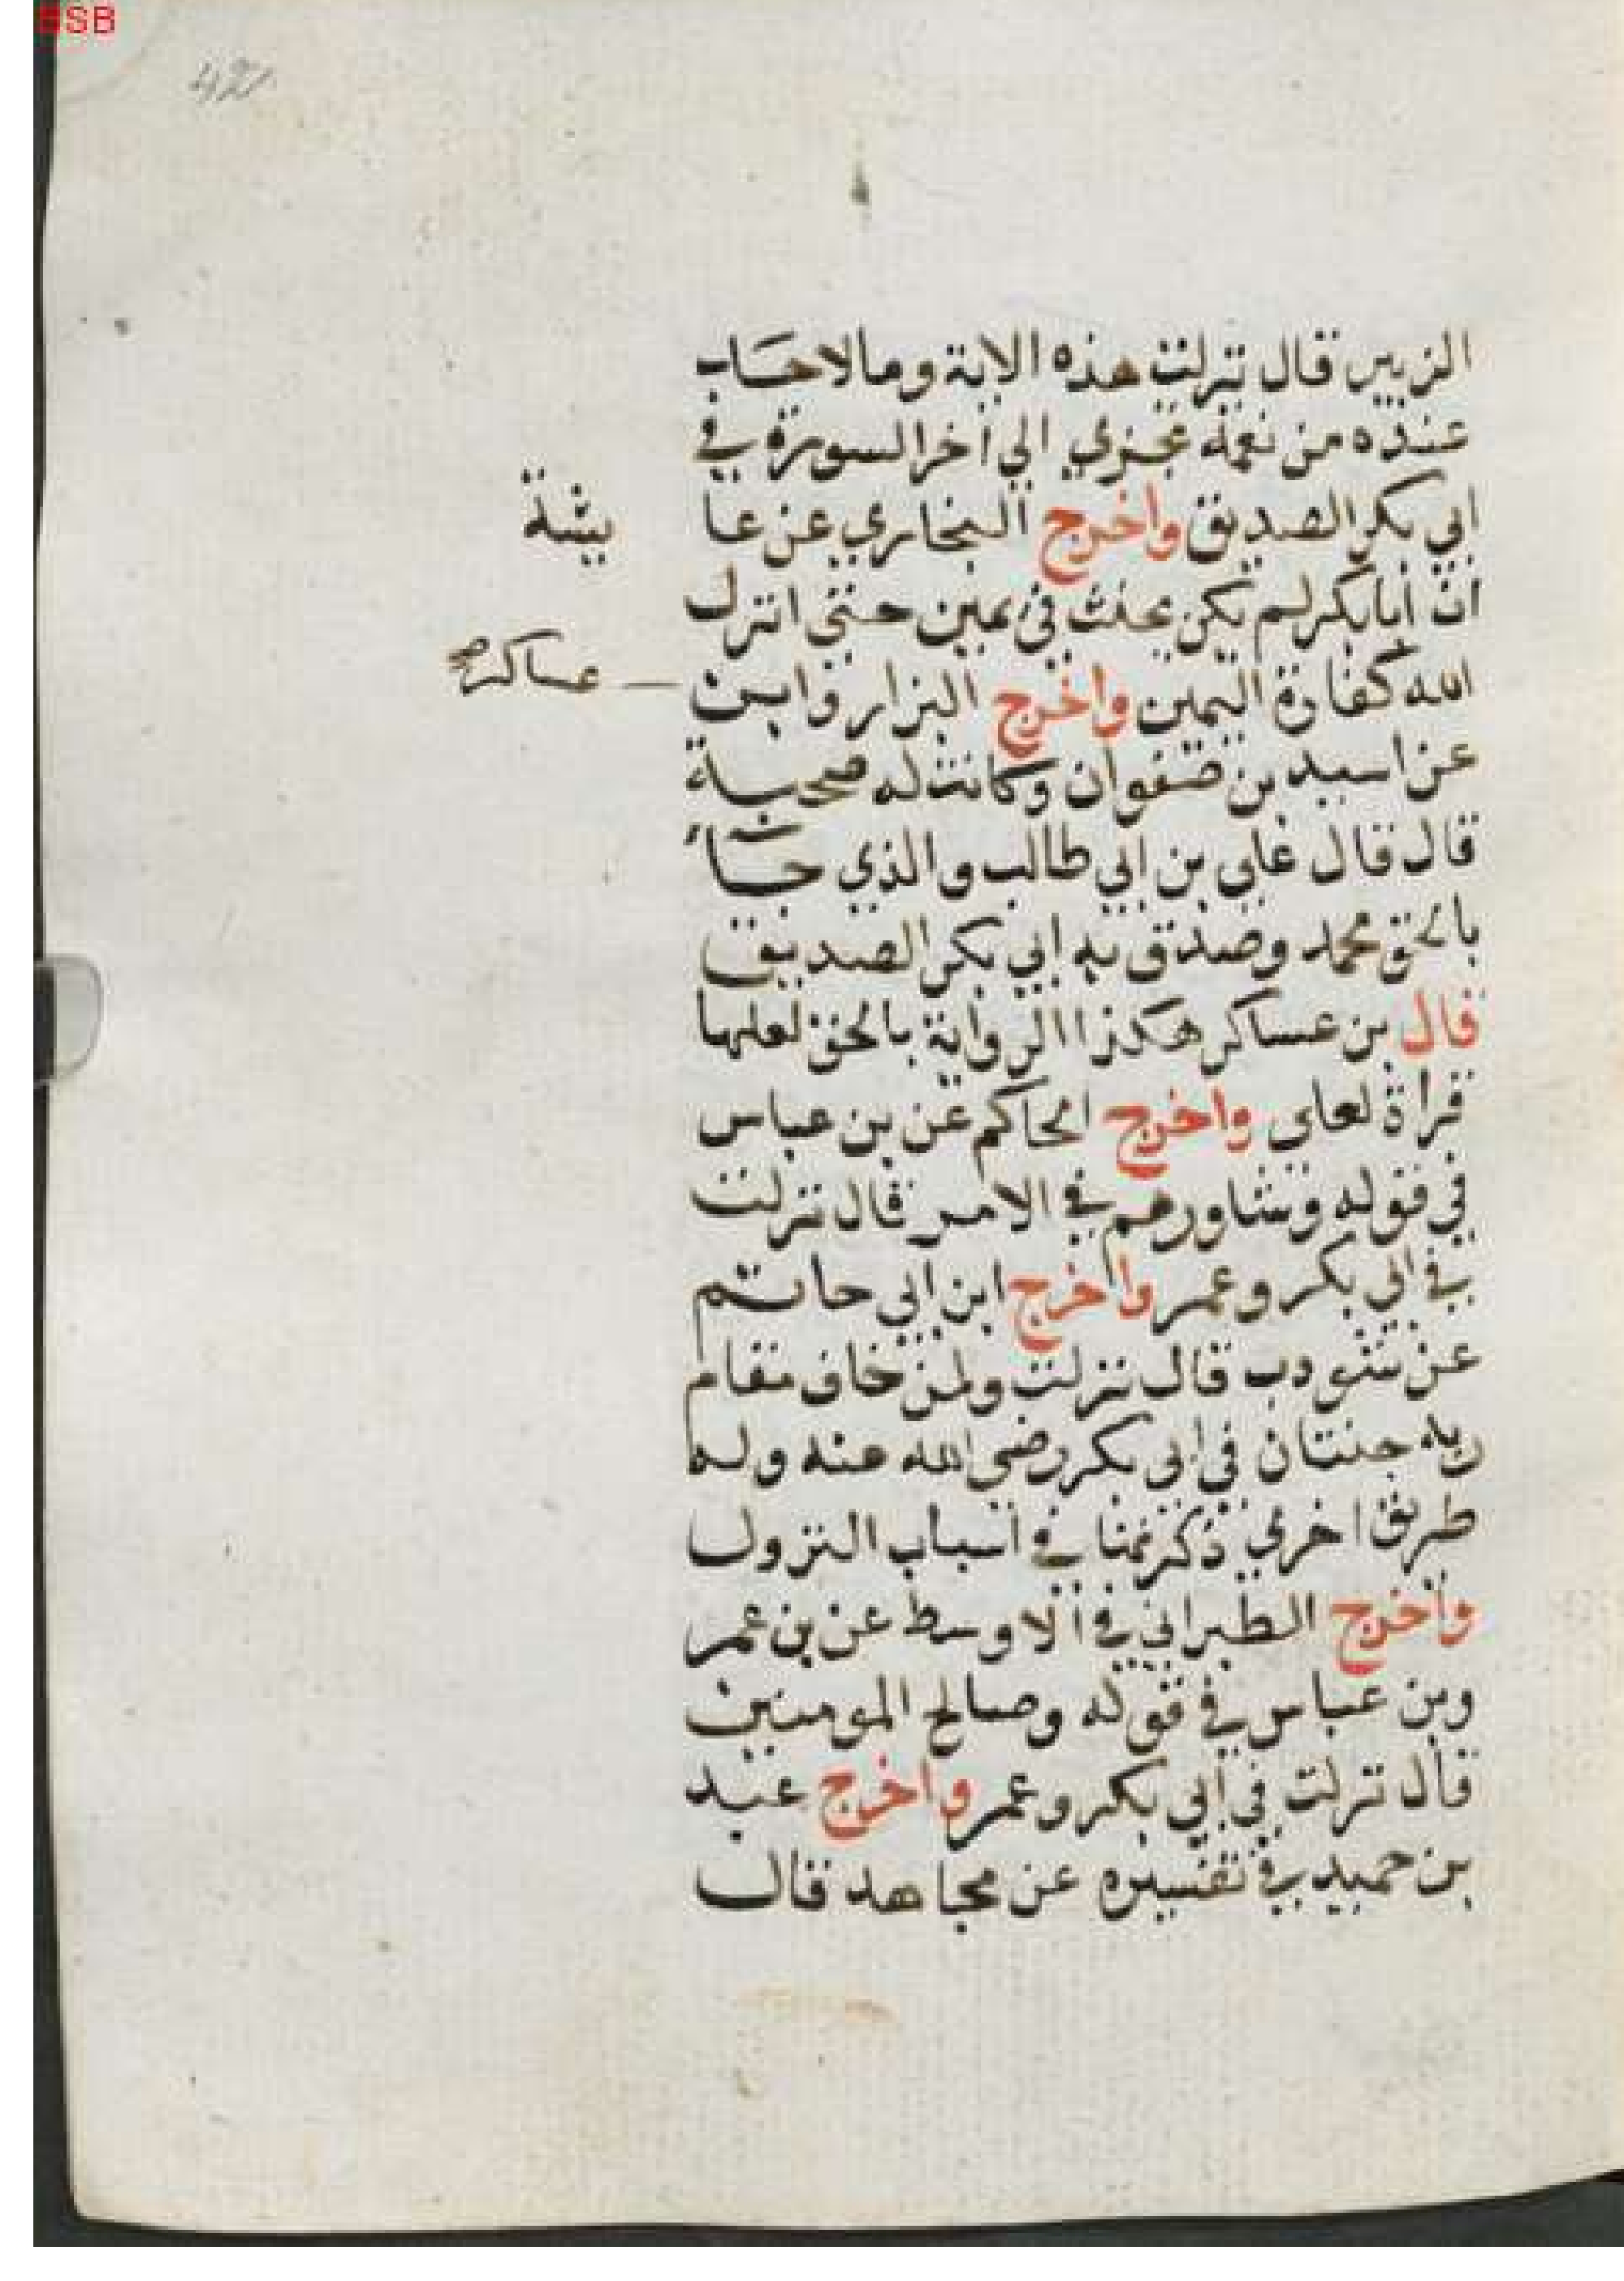 BSB
42
الزبير قال نزلت هذه الاية وما لاحد
عنده من نعمة تجزي الي اخر السورة في
ابي بكر الصديق واخرج البخاري عن عا يشة
ان ابا بكر لم يكن يحنث في يمين حتي انزل
الله كفارة اليمين واخرج البزار وابن عساكر صح
عن اسيد بن صفوان وكانت له صحبة
قال قال علي بن ابي طالب والذي جاء
بالحق محمد وصدق به ابي بكر الصديق
قال بن عساكر هكذا الرواية بالحق لعلها
قراة لعلي واخرج الحاكم عن بن عباس
في قوله وشاورهم في الامر قال نزلت
في ابي بكر وعمر واخرج ابن ابي حاتم
عن شودب قال نزلت ولمن خاف مقام
ربه جنتان في ابي بكر رضي الله عنه وله
طريق اخري ذكرتها في اسباب النزول
واخرج الطبراني في الاوسط عن بن عمر
وبن عباس في قوله وصالح المومنين
قال نزلت في ابي بكر وعمر واخرج عبد
بن حميد في تفسيره عن مجاهد قال